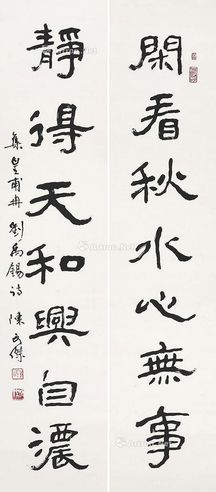 閑看秋水心無事
靜得天和興自濃
集皇甫冉劉禹錫詩 陳文傑